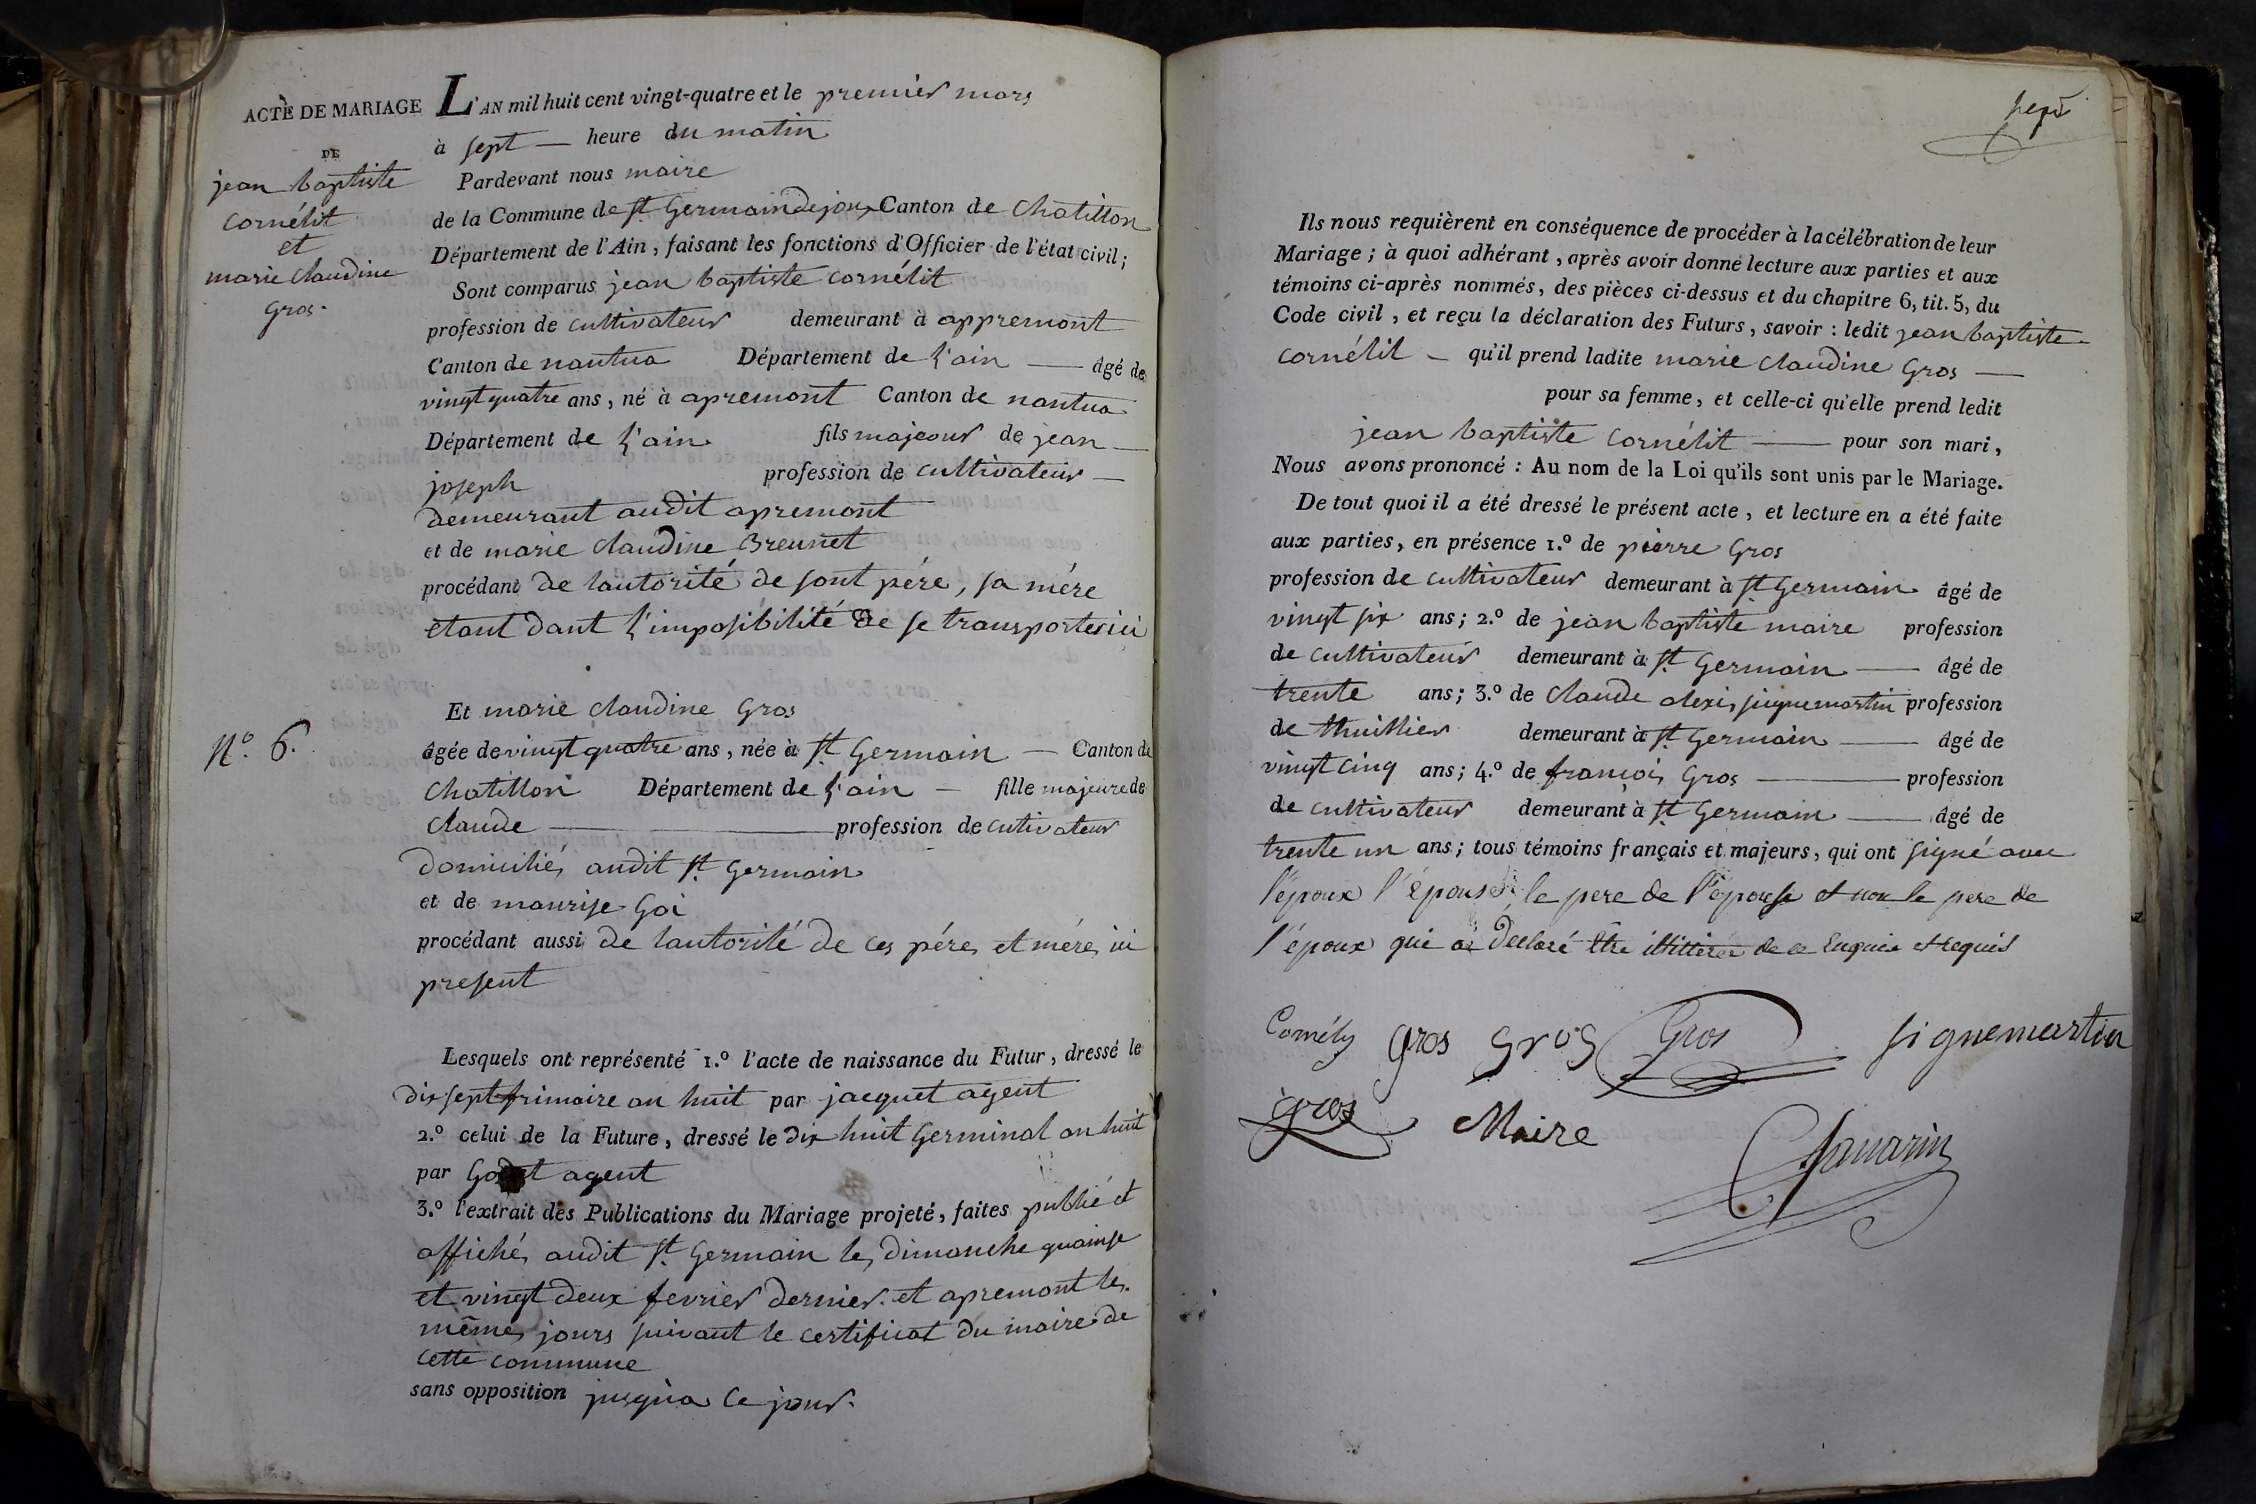 ACTE DE MARIAGE
DE
jean baptiste
cornélit
et
marie claudine
gros.
N.º 6.
L'AN mil huit cent vingt-quatre et le premier mars
à sept — heure du matin
Pardevant nous maire
de la Commune de St Germaindejoux Canton de Chatillon
Département de l'Ain, faisant les fonctions d'Officier de l'état civil;
Sont comparus jean baptiste cornélit
profession de cultivateur demeurant à appremont
Canton de nantua Département de l'ain — âgé de
vingt quatre ans, né à apremont Canton de nantua
Département de l'ain fils majeour de jean —
joseph profession de cultivateur —
demeurant audit apremont
et de marie claudine Breunet
procédant de lautorité de sont pére, sa mére
etant dant l'imposibilité de se transporter ici
Et marie claudine Gros
âgée de vingt quatre ans, née à St Germain — Canton de
Chatillon Département de l'ain — fille majeure de
claude — profession de cutivateur
domiciliés audit St Germain
et de maurise Goi
procédant aussi de lautorité de ces péres et méres ici
present
Lesquels ont représenté 1.º l'acte de naissance du Futur, dressé le
dix sept frimaire an huit par jacquet agent
2.º celui de la Future, dressé le dix huit Germinal an huit
par agent
3.º l'extrait des Publications du Mariage projeté, faites publié et
affichés audit St Germain les dimanche quainse
et vingt deux fevrier dernier. et apremont les
mêmes jours suivant le certificat du maire de
cette commune
sans opposition jusqua ce jour.
sept
Ils nous requièrent en conséquence de procéder à la célébration de leur
Mariage; à quoi adhérant, après avoir donné lecture aux parties et aux
témoins ci-après nommés, des pièces ci-dessus et du chapitre 6, tit. 5, du
Code civil, et reçu la déclaration des Futurs, savoir: ledit jean baptiste
cornélit — qu'il prend ladite marie claudine Gros —
pour sa femme, et celle-ci qu'elle prend ledit
jean baptiste cornélit — pour son mari,
Nous avons prononcé: Au nom de la Loi qu'ils sont unis par le Mariage.
De tout quoi il a été dressé le présent acte, et lecture en a été faite
aux parties, en présence 1.º de pierre Gros
profession de cultivateur demeurant à St Germain âgé de
vingt six ans; 2.º de jean baptiste maire profession
de cultivateur demeurant à St Germain — âgé de
trente ans; 3.º de Claude alexis signemartin profession
de thuillier demeurant à St Germain — âgé de
vingt cinq ans; 4.º de françois Gros — profession
de cultivateur demeurant à St Germain — âgé de
trente un ans; tous témoins français et majeurs, qui ont signé avec
l'époux l'épouse le pere de l'épouse et non le pere de
l'époux qui a déclaré être illitteré de ce Enquis et requis
Cornély gros gros Gros signemartin
gros Maire